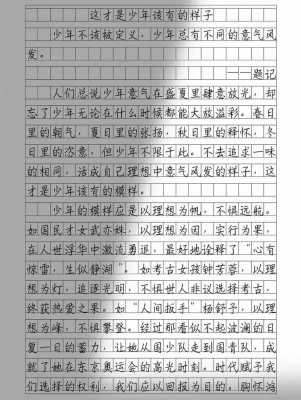 这才是少年该有的样子
少年不该被定义，少年总有不同的意气风
发。
——题记
人们总说少年意气在盛夏里肆意放光，却
忘了少年无论在什么时候都能大放溢彩。春日
里的朝气，夏日里的张扬，秋日里的释怀，冬
日里的恣意，但少年不限于此。不去追求一味
的相同，活成自己理想中意气风发的样子，这
才是少年该有的模样。
少年的模样应是以理想为帆，不惧远航。
如国民才女武亦姝，以理想为因，实行为果，
在人世浮华中激流勇退，最好地诠释了“心有
惊雷，生似静湖”。如考古女孩钟芳蓉，以理
想为灯，追逐光明，不惧世人非议选择考古，
终获热爱之果。如“人间扳手”杨舒予，以理
想为峰，不惧攀登。经过那看似不起波澜的日
复一日的蓄力，让她从国少队走到国青队，成
就了她在东京奥运会的高光时刻。时代赋予我
们选择的权利，我们应以回报为目的。胸怀鸿